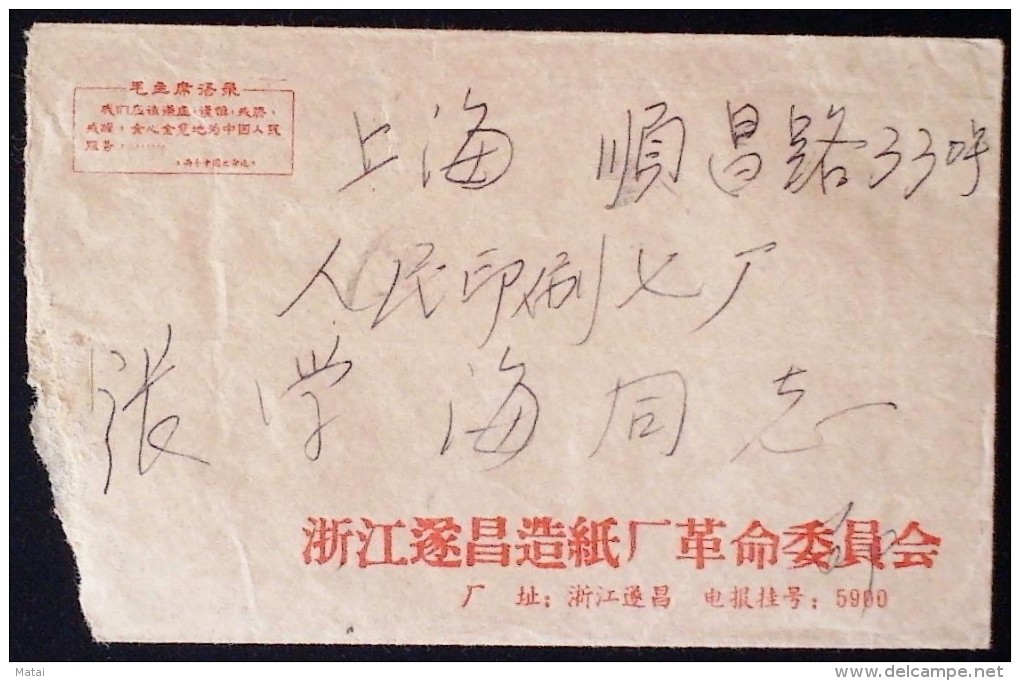 毛主席语录
我们应该谦虚,谨慎,戒骄,
戒躁,全心全意地为中国人民
服务,……
《两个中国之命运》
上海 順昌路33号
人民印刷七厂
张学海同志
浙江遂昌造紙厂革命委員会
厂 址:浙江遂昌 电报挂号:5900
Matai
www.delcampe.net